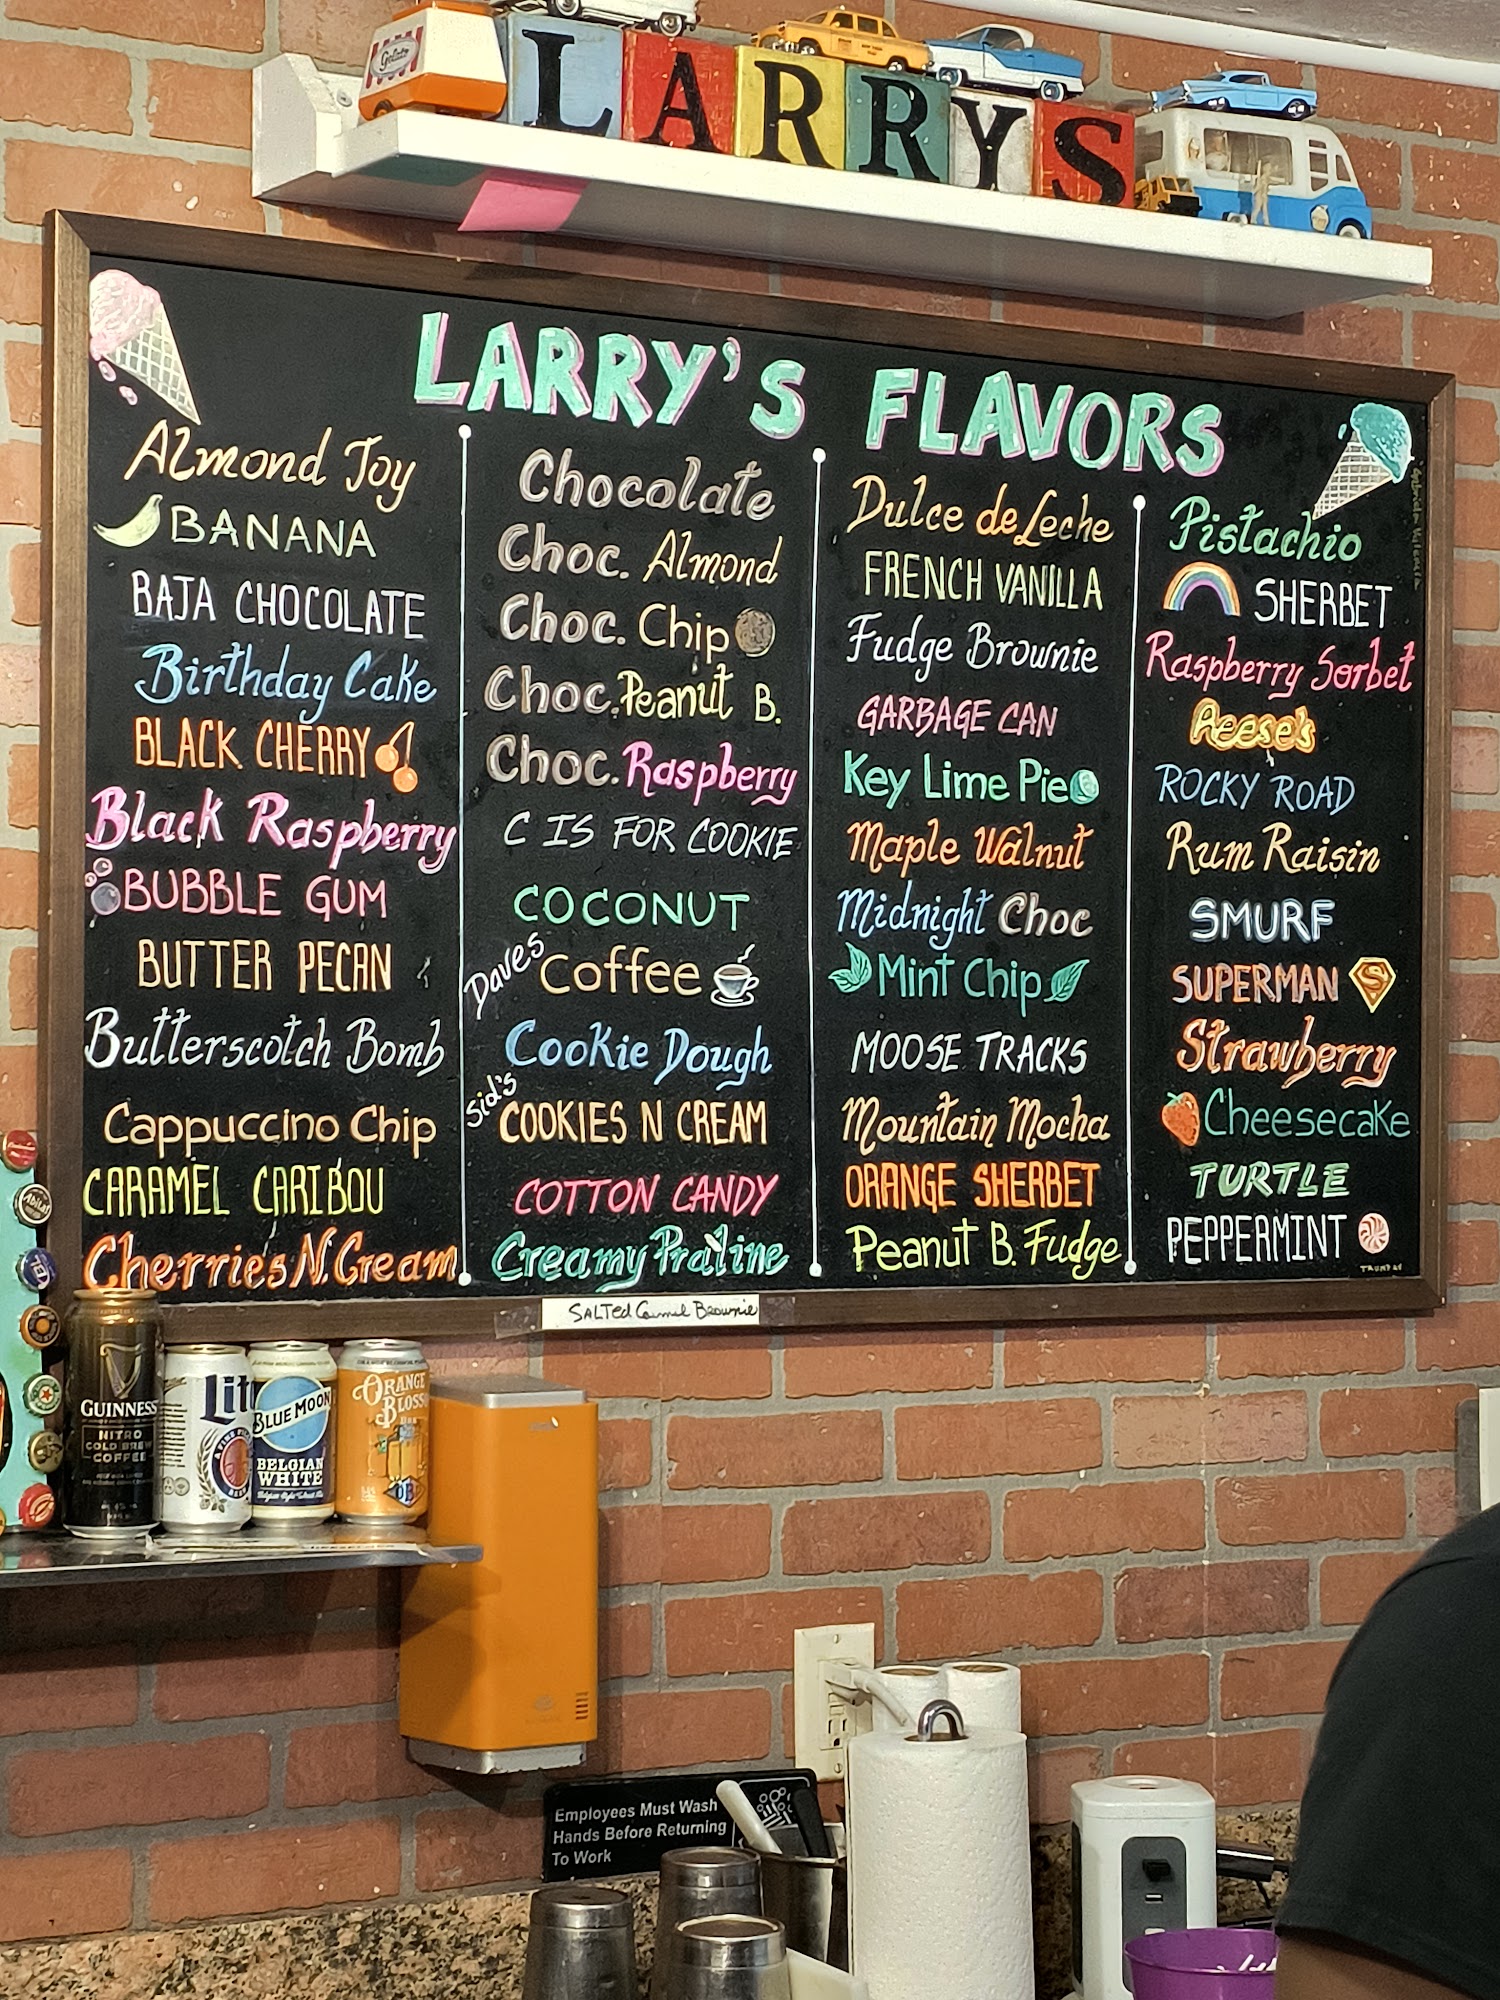 Gelato
LARRYS
LARRY'S FLAVORS
Almond Joy
BANANA
BAJA CHOCOLATE
Birthday Cake
BLACK CHERRY
Black Raspberry
BUBBLE GUM
BUTTER PECAN
Butterscotch Bomb
Cappuccino Chip
CARAMEL CARIBOU
Cherries N. Cream
Chocolate
Choc. Almond
Choc. Chip
Choc. Peanut B.
Choc. Raspberry
C IS FOR COOKIE
COCONUT
Daves Coffee
Cookie Dough
Sid's COOKIES N CREAM
COTTON CANDY
Creamy Praline
Dulce de Leche
FRENCH VANILLA
Fudge Brownie
GARBAGE CAN
Key Lime Pie
Maple Walnut
Midnight Choc
Mint Chip
MOOSE TRACKS
Mountain Mocha
ORANGE SHERBET
Peanut B. Fudge
Pistachio
SHERBET
Raspberry Sorbet
Reese's
ROCKY ROAD
Rum Raisin
SMURF
SUPERMAN S
Strawberry
Cheesecake
TURTLE
PEPPERMINT
SALTed Caramel Brownie
GUINNESS
NITRO
COLD BREW
COFFEE
Lit
A FINE PILS
BLUE MOON
BELGIAN
WHITE
ORANGE
BLOSSO
Employees Must Wash
Hands Before Returning
To Work